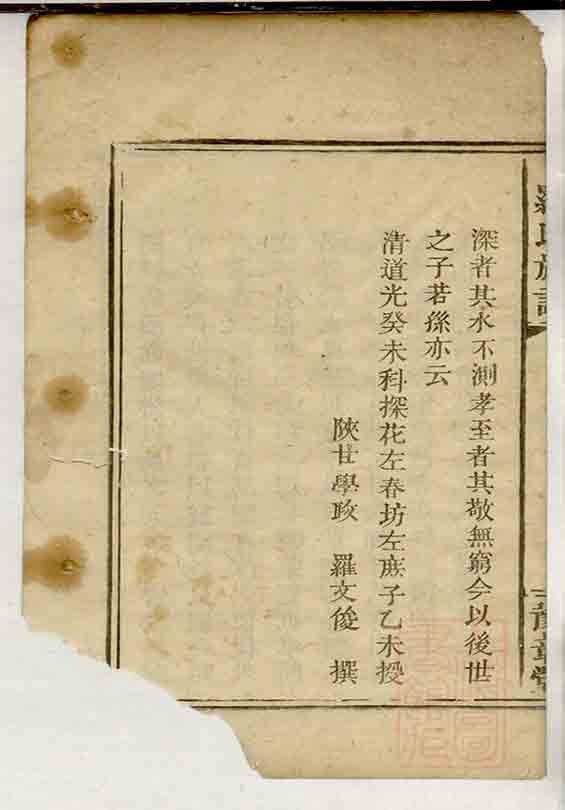 羅氏族譜
豫章堂
深者其水不測孝至者其敬無窮今以後世
之子若孫亦云
清道光癸未科探花左春坊左庶子乙未授
陝甘學政　羅文俊　撰